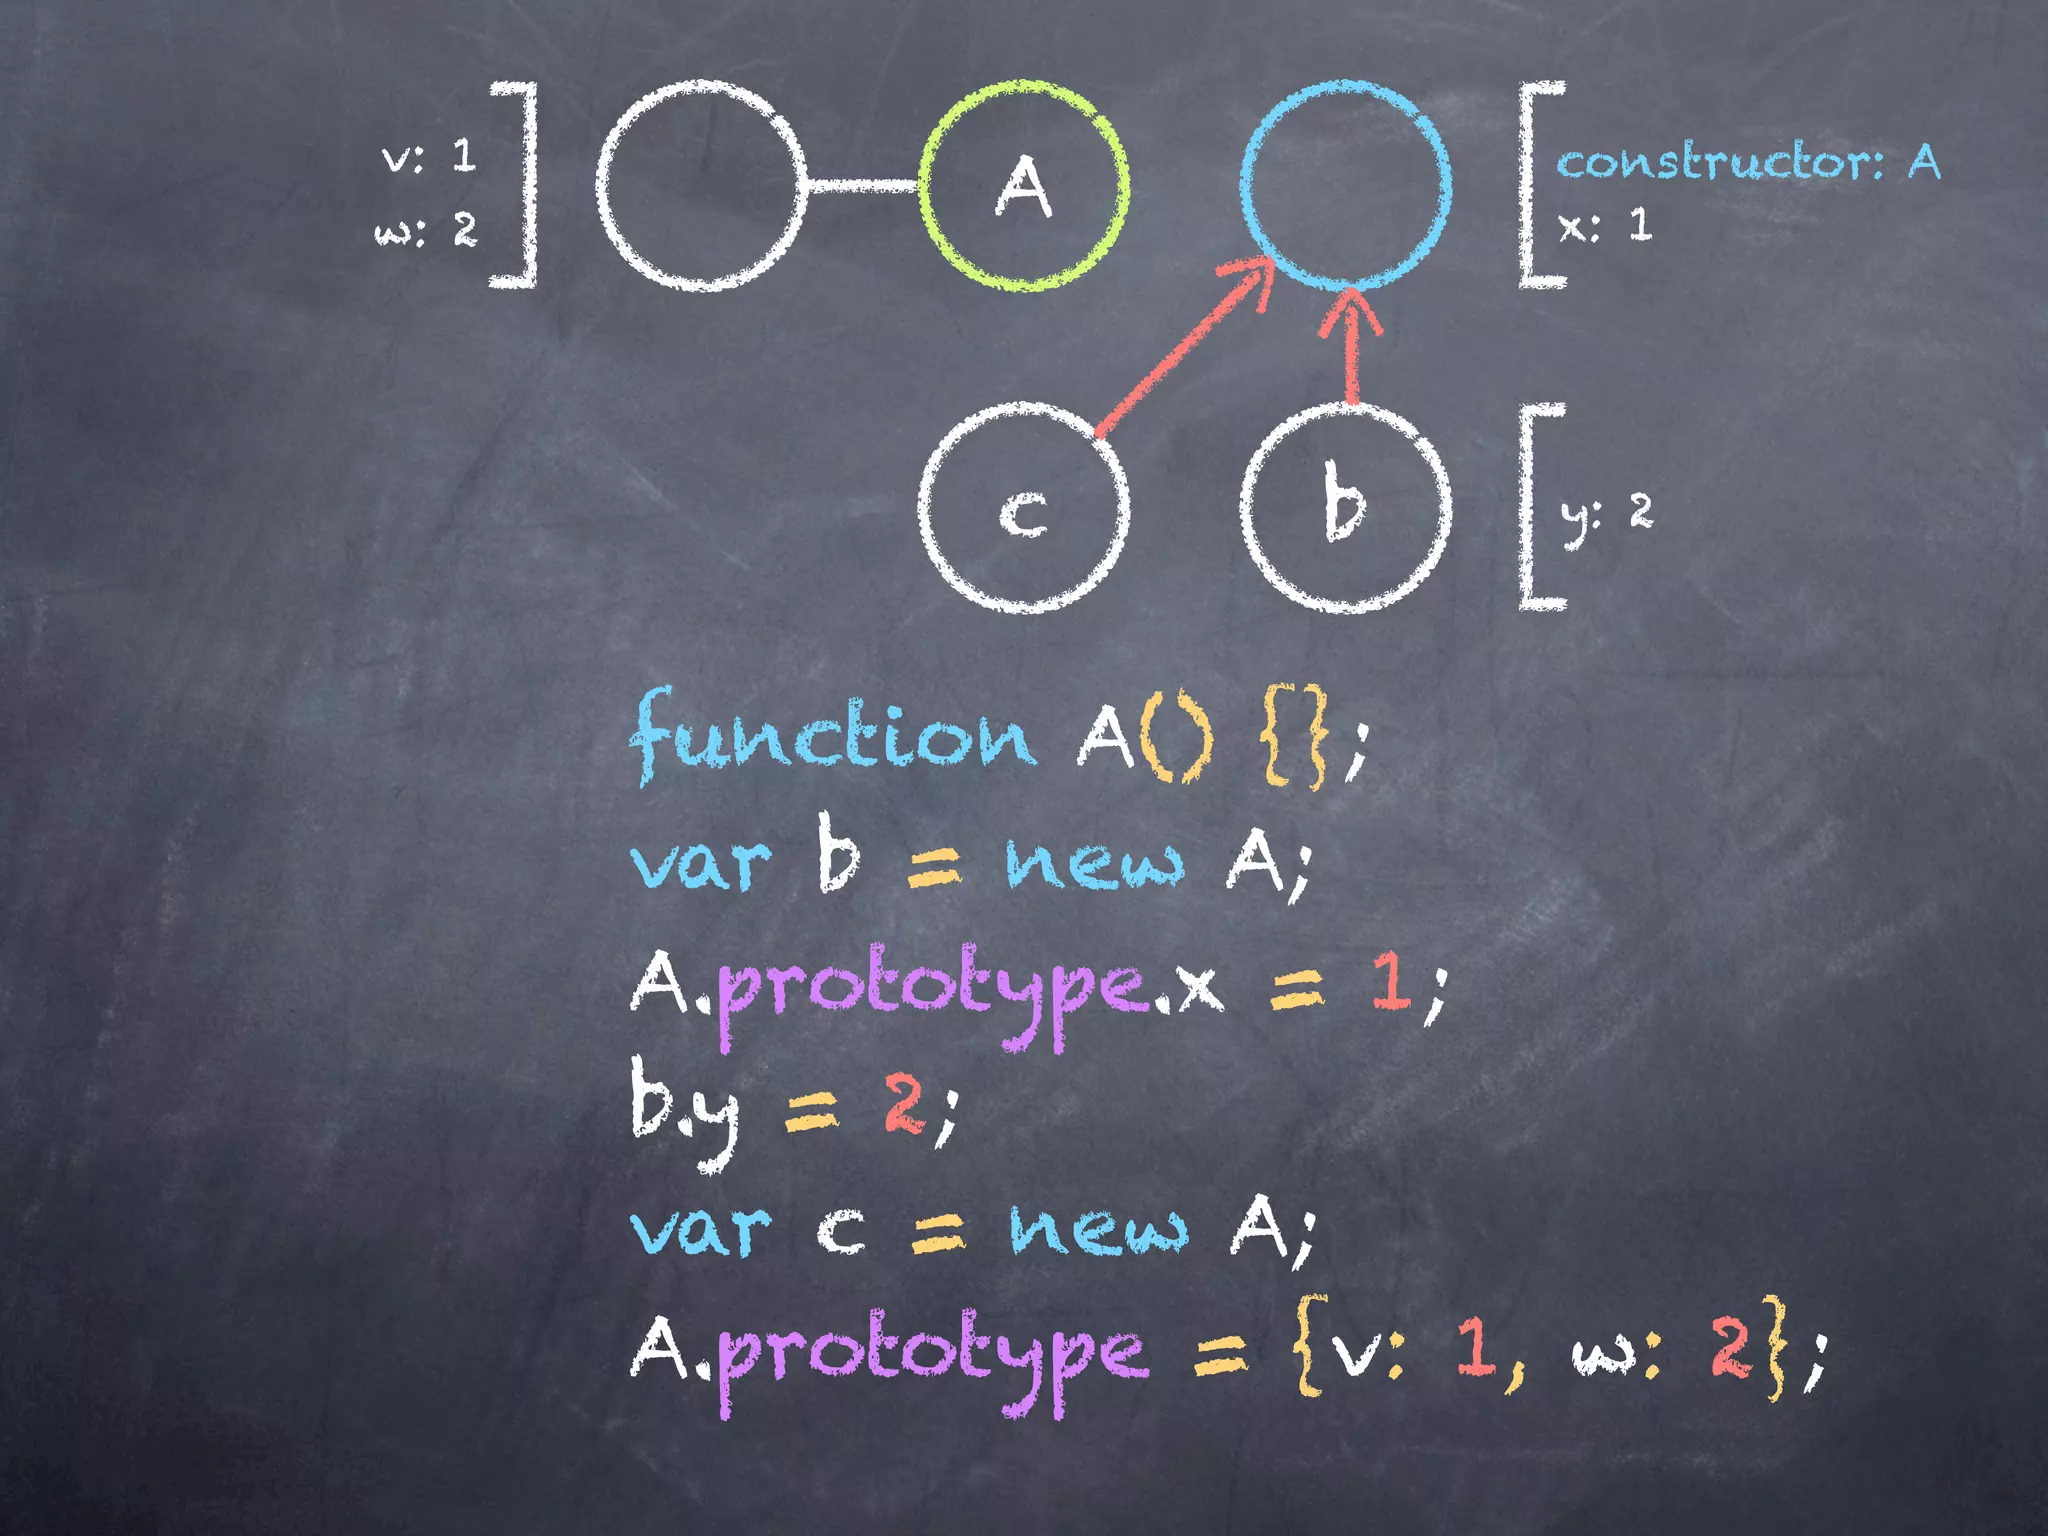 v: 1
w: 2
A
constructor: A
x: 1
c
b
y: 2
function A() {};
var b = new A;
A.prototype.x = 1;
b.y = 2;
var c = new A;
A.prototype = {v: 1, w: 2};